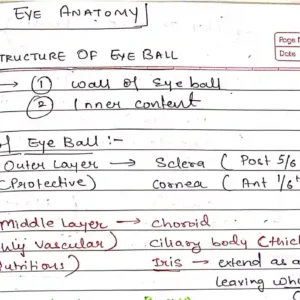 EYE ANATOMY
STRUCTURE OF EYE BALL
Page N
Date
→ ① Wall of eye ball
② Inner content
of Eye Ball :-
Outer Layer → Sclera ( Post 5/6
(Protective) Cornea ( Ant 1/6
Middle Layer → choroid
Vascular) ciliary body (thic
nutritions) Iris → extend as a
leaving